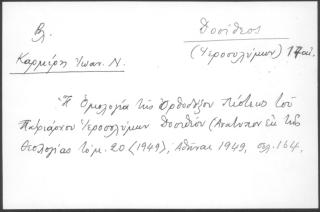 Βλ.
Δοσίθεος
(Ἱεροσολύμων) 17 αἰ.
Καρμίρη Ἰωαν. Ν.
Ἡ Ὁμολογία τῆς Ὀρθοδόξου πίστεως τοῦ
Πατριάρχου Ἱεροσολύμων Δοσιθέου (Ἀνάτυπον ἐκ τῆς
Θεολογίας τόμ. 20 (1949), Ἀθῆναι 1949, σελ. 164.